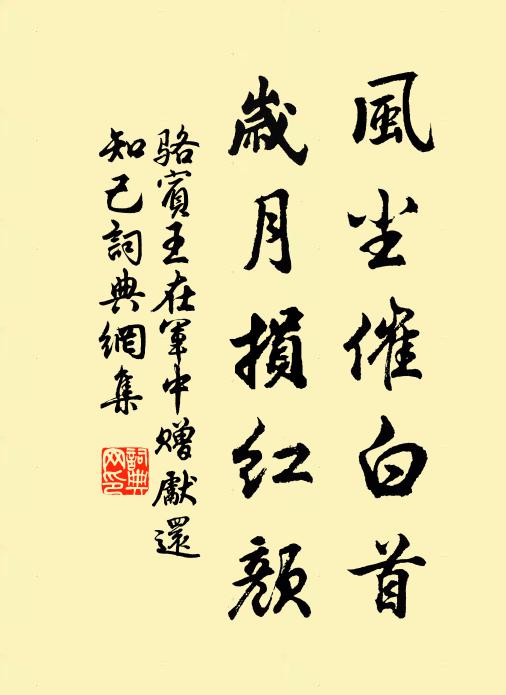 風尘催白首
歲月損紅顏
駱賓王在軍中贈獻還
知己詞典網集
詞典网印